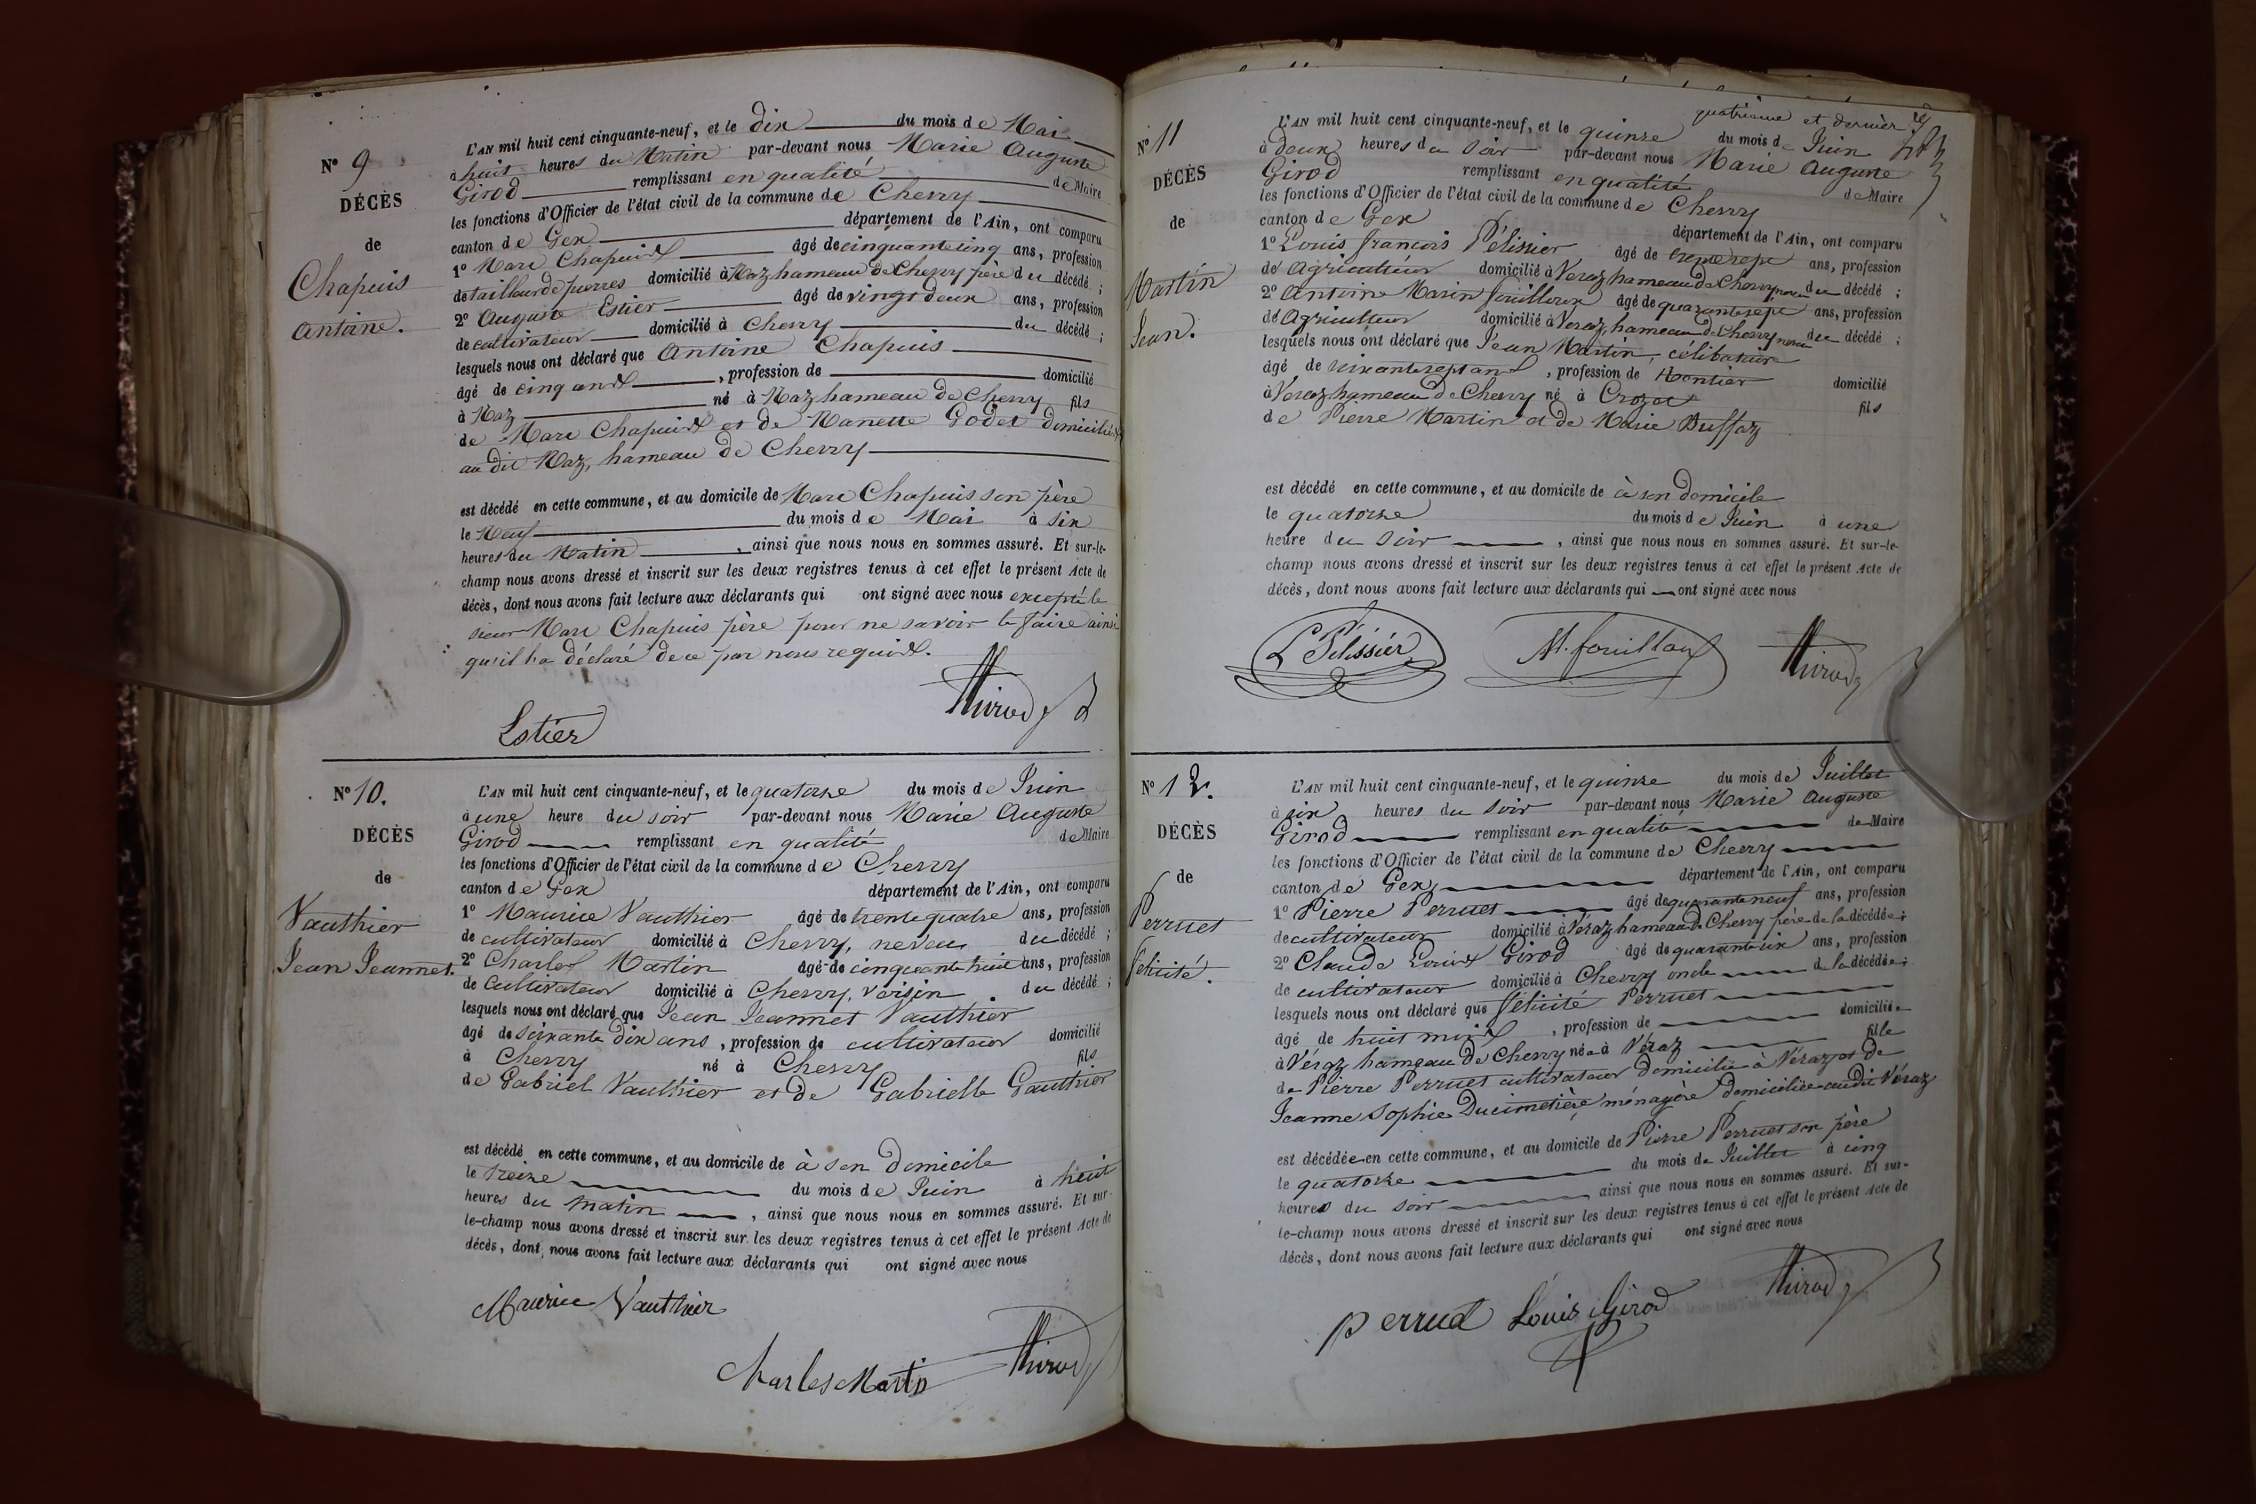 N° 9
DÉCÈS
de
Chapuis
Antoine.
L'AN mil huit cent cinquante-neuf, et le dix du mois de Mai
à huit heures du Matin par-devant nous Marie Auguste
Girod remplissant en qualité de Maire
les fonctions d'Officier de l'état civil de la commune de Chevry
canton de Gex département de l'Ain, ont comparu
1° Marc Chapuis âgé de cinquante cinq ans, profession
de tailleur de pierres domicilié à Naz hameau de Chevry père du décédé ;
2° Auguste Estier âgé de vingt deux ans, profession
de cultivateur domicilié à Chevry du décédé ;
lesquels nous ont déclaré que Antoine Chapuis
âgé de cinq ans, profession de domicilié
à Naz né à Naz hameau de Chevry fils
de Marc Chapuis et de Nanette Godet domiciliés
au dit Naz, hameau de Chevry
est décédé en cette commune, et au domicile de Marc Chapuis son père
le Neuf du mois de Mai à six
heures du Matin, ainsi que nous nous en sommes assuré. Et sur-le-
champ nous avons dressé et inscrit sur les deux registres tenus à cet effet le présent Acte de
décès, dont nous avons fait lecture aux déclarants qui ont signé avec nous excepté le
sieur Marc Chapuis père pour ne savoir le faire ainsi
qu'il l'a déclaré de ce par nous requis.
Estier
Girod
N° 10.
DÉCÈS
de
Vauthier
Jean Jeannet.
L'AN mil huit cent cinquante-neuf, et le quatorze du mois de Juin
à une heure du soir par-devant nous Marie Auguste
Girod remplissant en qualité de Maire
les fonctions d'Officier de l'état civil de la commune de Chevry
canton de Gex département de l'Ain, ont comparu
1° Maurice Vauthier âgé de trente quatre ans, profession
de cultivateur domicilié à Chevry, neveu du décédé ;
2° Charles Martin âgé de cinquante huit ans, profession
de cultivateur domicilié à Chevry, voisin du décédé ;
lesquels nous ont déclaré que Jean Jeannet Vauthier
âgé de soixante dix ans, profession de cultivateur domicilié
à Chevry né à Chevry fils
de Gabriel Vauthier et de Gabrielle Gauthier
est décédé en cette commune, et au domicile de à son domicile
le treize du mois de Juin à huit
heures du matin, ainsi que nous nous en sommes assuré. Et sur-
le-champ nous avons dressé et inscrit sur les deux registres tenus à cet effet le présent Acte de
décès, dont nous avons fait lecture aux déclarants qui ont signé avec nous
Maurice Vauthier
Charles Martin
Girod
quatrième et dernier
N° 11
DÉCÈS
de
Martin
Jean.
L'AN mil huit cent cinquante-neuf, et le quinze du mois de Juin
à deux heures du soir par-devant nous Marie Auguste
Girod remplissant en qualité de Maire
les fonctions d'Officier de l'état civil de la commune de Chevry
canton de Gex département de l'Ain, ont comparu
1° Louis François Pélissier âgé de trente sept ans, profession
de Agriculteur domicilié à Veraz hameau de Chevry neveu du décédé ;
2° Antoine Marin Fouilloux âgé de quarante sept ans, profession
de Agriculteur domicilié à Veraz hameau de Chevry neveu du décédé ;
lesquels nous ont déclaré que Jean Martin, célibataire
âgé de soixante sept ans, profession de Rentier domicilié
à Veraz hameau de Chevry né à Crozet fils
de Pierre Martin et de Marie Duffaz
est décédé en cette commune, et au domicile de à son domicile
le quatorze du mois de Juin à une
heure du soir, ainsi que nous nous en sommes assuré. Et sur-le-
champ nous avons dressé et inscrit sur les deux registres tenus à cet effet le présent Acte de
décès, dont nous avons fait lecture aux déclarants qui ont signé avec nous
L Pélissier
M. fouilloux
Girod
N° 12.
DÉCÈS
de
Perruet
Félicité.
L'AN mil huit cent cinquante-neuf, et le quinze du mois de Juillet
à six heures du soir par-devant nous Marie Auguste
Girod remplissant en qualité de Maire
les fonctions d'Officier de l'état civil de la commune de Chevry
canton de Gex, département de l'Ain, ont comparu
1° Pierre Perruet âgé de quarante neuf ans, profession
de cultivateur domicilié à Véraz hameau de Chevry père de la décédée ;
2° Claude Louis Girod âgé de quarante six ans, profession
de cultivateur domicilié à Chevry oncle de la décédée ;
lesquels nous ont déclaré que Félicité Perruet
âgé de huit mois, profession de domiciliée
à Véraz hameau de Chevry née à Véraz fille
de Pierre Perruet cultivateur domicilié à Véraz et de
Jeanne Sophie Ducimetière ménagère domiciliée au dit Véraz
est décédée en cette commune, et au domicile de Pierre Perruet son père
le quatorze du mois de Juillet à cinq
heures du soir ainsi que nous nous en sommes assuré. Et sur-
le-champ nous avons dressé et inscrit sur les deux registres tenus à cet effet le présent Acte de
décès, dont nous avons fait lecture aux déclarants qui ont signé avec nous
Perruet Louis Girod
Girod